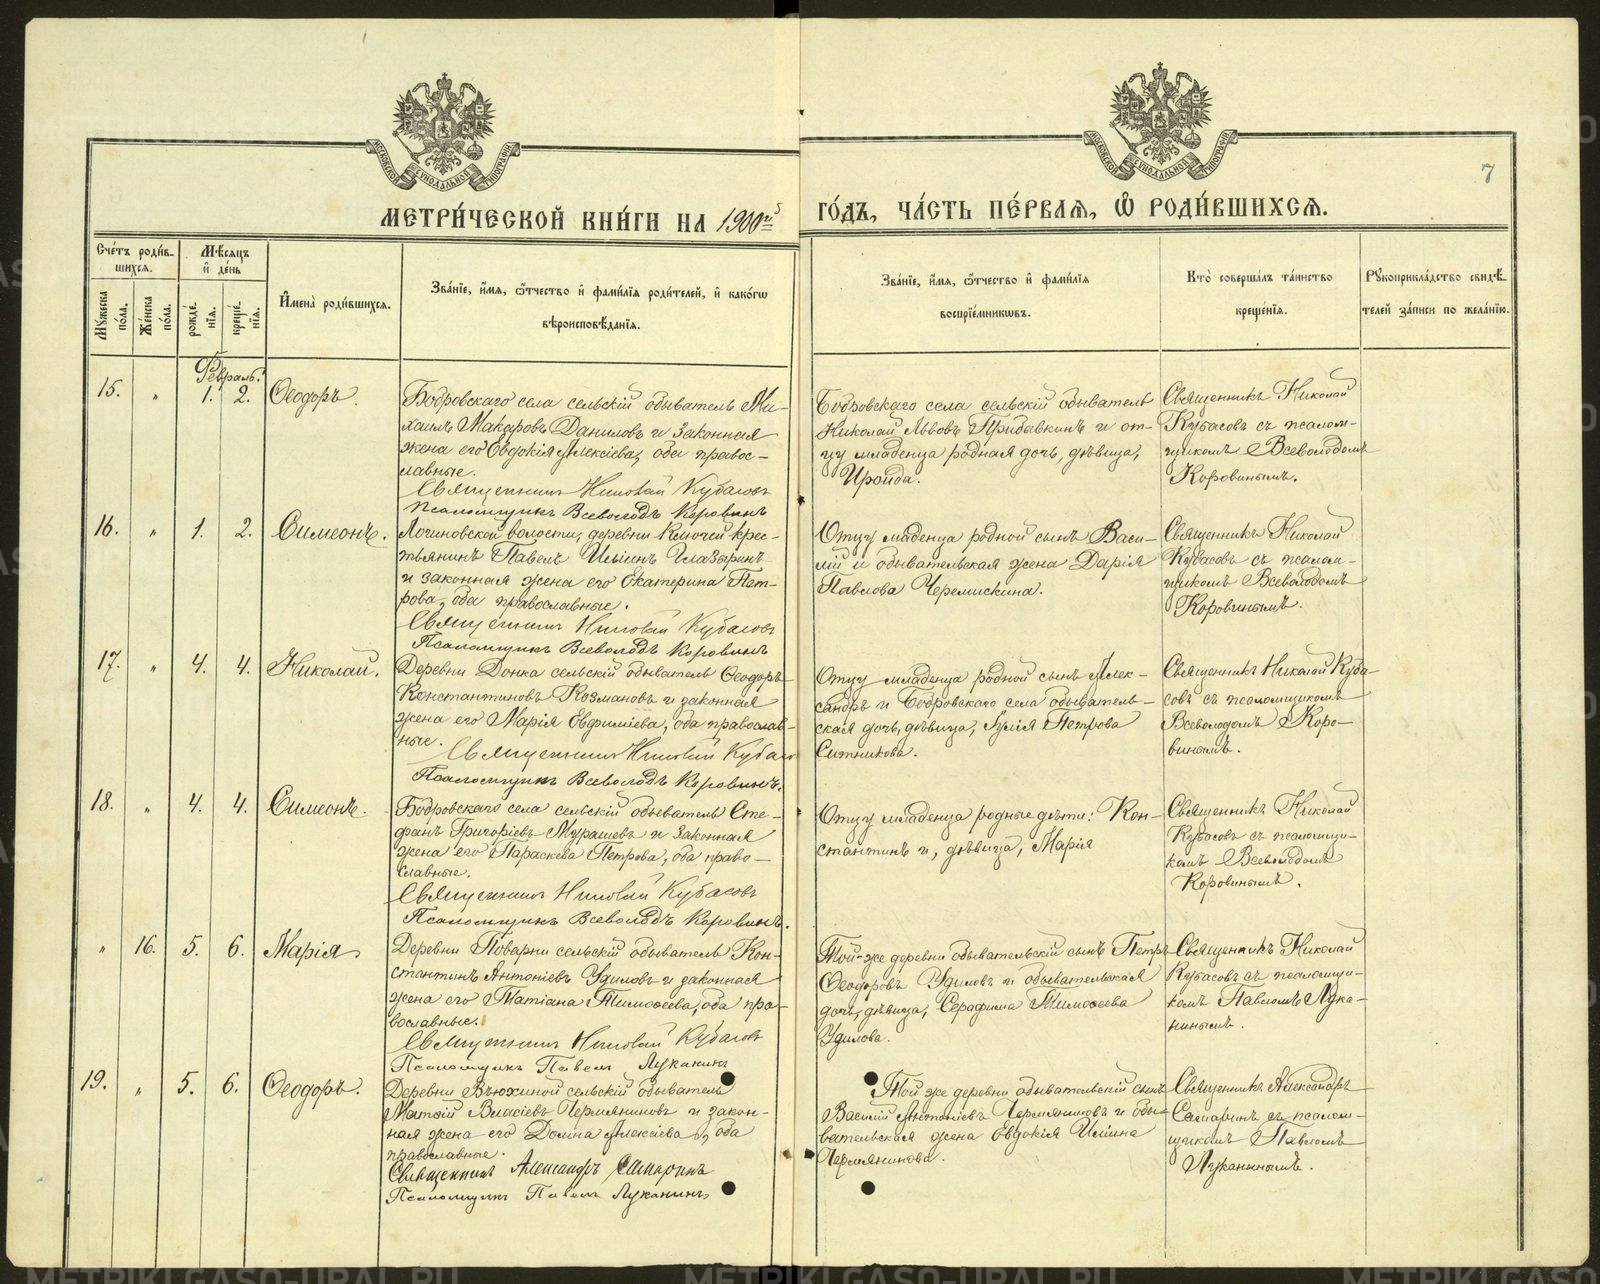 7
МОСКОВСКОЙ СѴНОДАЛЬНОЙ ТИПОГРАФІИ
МОСКОВСКОЙ СѴНОДАЛЬНОЙ ТИПОГРАФІИ
МЕТРИ́ЧЕСКОЙ КНИ́ГИ НА 1900й
ГО́ДЪ, ЧА́СТЬ ПЕ́РВАѦ, Ѡ҆ РОДИ́ВШИХСѦ.
Сче́тъ роди́в-
шихся.
Мѣ́сяцъ
и҆ де́нь
Мꙋ́жеска
по́ла.
Же́нска
по́ла.
рожде́-
нїя.
креще́-
нїя.
И҆мена̀ роди́вшихся.
Зва́нїе, и҆́мя, ѻ҆́тчество и҆ фами́лїя роди́телей, и҆ како́гѡ
вѣроисповѣ́данїя.
Зва́нїе, и҆́мя, ѻ҆́тчество и҆ фами́лїя
воспрїе́мникѡвъ.
Кто̀ соверша́лъ та́инство
креще́нїя.
Рꙋкоприкла́дство свидѣ́-
телей за́писи по жела́нїю.
Февраль.
15. " 1. 2. Ѳеодоръ.
Бобровскаго села сельскій обыватель Ми-
хаилъ Макаровъ Даниловъ и законная
жена его Евдокія Алексіева, оба правос-
лавные.
Священникъ Николай Кубасовъ
Псаломщикъ Всеволодъ Коровинъ
Бобровскаго села сельскій обыватель
Николай Львовъ Прибавкинъ и от-
цу младенца родная дочь, дѣвица,
Ироида.
Священникъ Николай
Кубасовъ съ псалом-
щикомъ Всеволодомъ
Коровинымъ.
16. " 1. 2. Симеонъ.
Логиновской волости, деревни Ключей крес-
тьянинъ Павелъ Ильинъ Глазыринъ
и законная жена его Екатерина Пет-
рова, оба православные.
Священникъ Николай Кубасовъ
Псаломщикъ Всеволодъ Коровинъ
Отцу младенца родной сынъ Васи-
лій и обывательская жена Дарія
Павлова Черемискина.
Священникъ Николай
Кубасовъ съ псалом-
щикомъ Всеволодомъ
Коровинымъ.
17. " 4. 4. Николай.
Деревни Донка сельскій обыватель Ѳеодоръ
Константиновъ Козмановъ и законная
жена его Марія Евѳиміева, оба православ-
ные.
Священникъ Николай Кубасовъ
Псаломщикъ Всеволодъ Коровинъ.
Отцу младенца родной сынъ Алек-
сандръ и Бобровскаго села обыватель-
ская дочь, дѣвица, Іулія Петрова
Ситникова.
Священникъ Николай Куба-
совъ съ псаломщикомъ
Всеволодомъ Коро-
винымъ.
18. " 4. 4. Симеонъ.
Бобровскаго села сельскій обыватель Сте-
фанъ Григоріевъ Мурашевъ и законная
жена его Параскева Петрова, оба право-
славные.
Священникъ Николай Кубасовъ
Псаломщикъ Всеволодъ Коровинъ.
Отцу младенца родные дѣти: Кон-
стантинъ и, дѣвица, Марія
Священникъ Николай
Кубасовъ съ псаломщи-
комъ Всеволодомъ
Коровинымъ.
" 16. 5. 6. Марія
Деревни Поварни сельскій обыватель Кон-
стантинъ Антоніевъ Удиловъ и законная
жена его Татіана Тимоѳеева, оба пра-
вославные.
Священникъ Николай Кубасовъ
Псаломщикъ Павелъ Луканинъ
Той-же деревни обывательскій сынъ Петръ
Ѳеодоровъ Удиловъ и обывательская
дочь, дѣвица, Серафима Тимоѳеева
Удилова.
Священникъ Николай
Кубасовъ съ псаломщи-
комъ Павломъ Лука-
нинымъ.
19. " 5. 6. Ѳеодоръ.
Деревни Вьюхиной сельскій обыватель
Матѳій Алексіевъ Чермяниновъ и закон-
ная жена его Домна Алексіева, оба
православные.
Священникъ Александръ Самаринъ
Псаломщикъ Павелъ Луканинъ
Той же деревни обывательскій сынъ
Василій Антоніевъ Чермяниновъ и обы-
вательская жена Евдокія Ильина
Чермянинова.
Священникъ Александръ
Самаринъ съ псалом-
щикомъ Павломъ
Луканинымъ.
METRIKI.GASO-URAL.RU